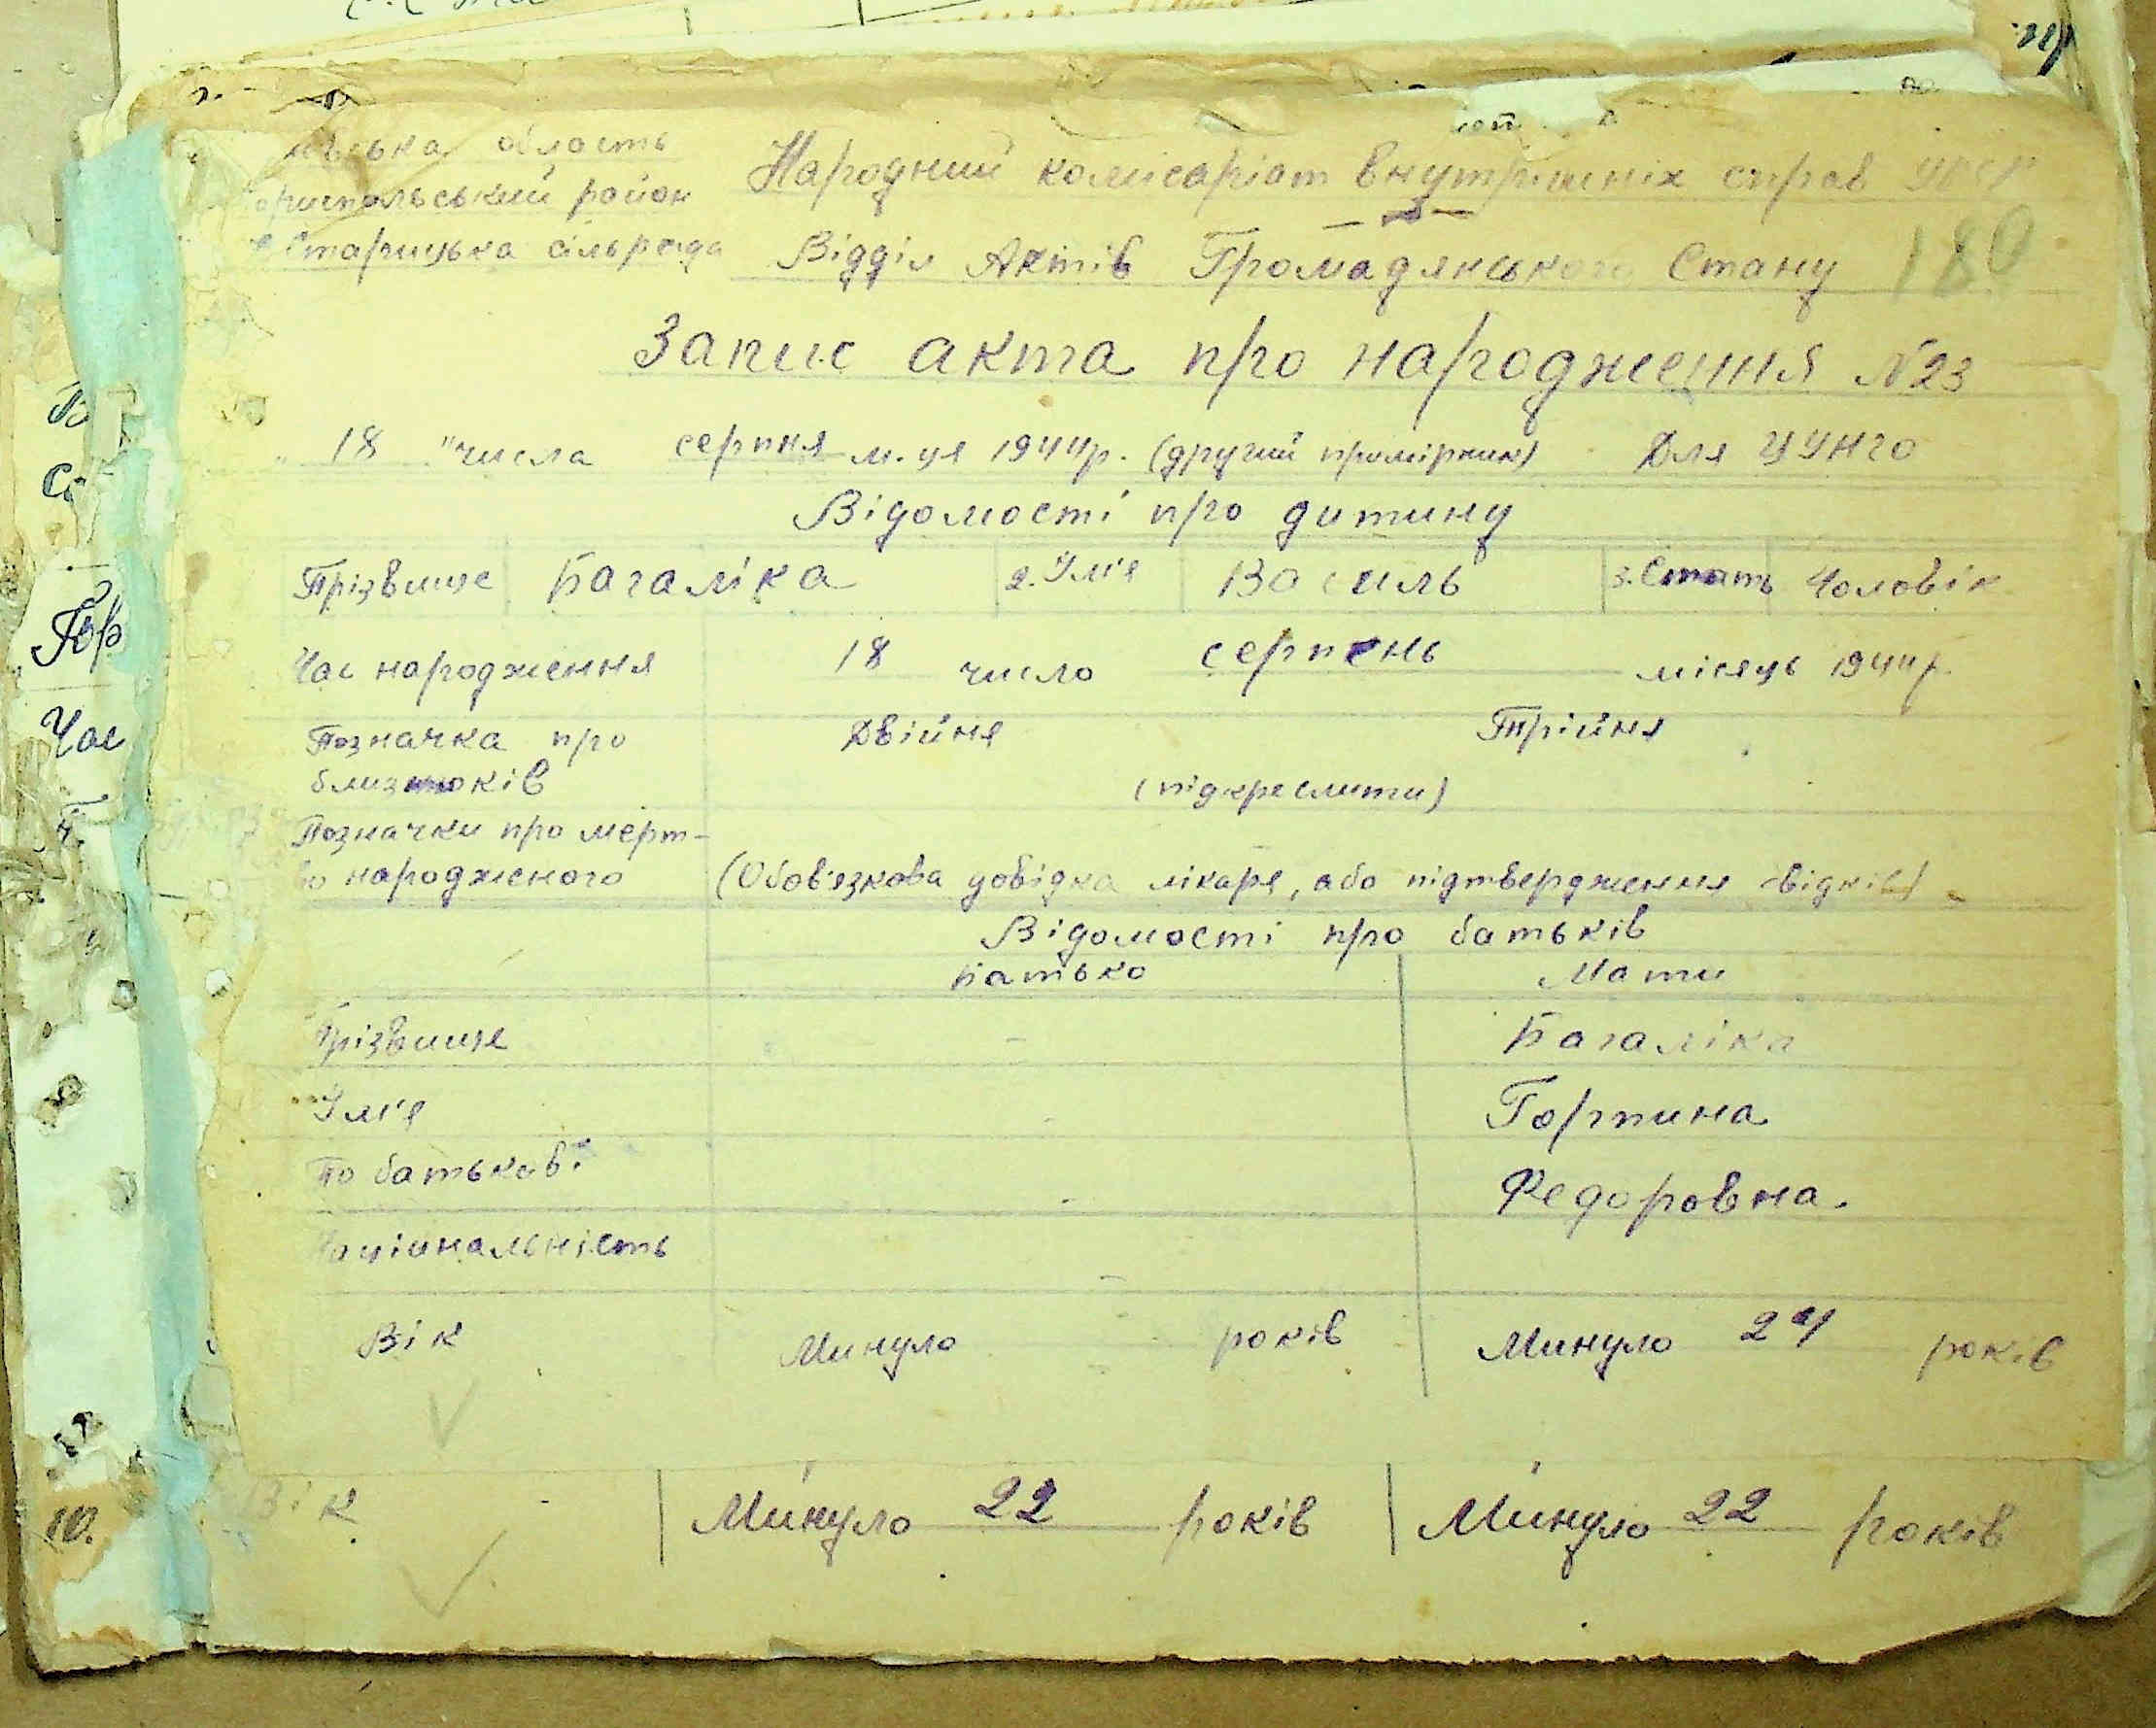 область
Народний комісаріат внутрішніх справ УРСР
район
Старицька сільрада
Відділ Актів Громадянського Стану 180
Запис акта про народження N23
" 18 " числа серпня м-ця 1944р. (другий примірник) Для ЦУНГО
Відомості про дитину
Прізвище Багаліка 2. Ім'я Василь 3. Стать Чоловік
Час народження 18 число серпень місяць 1944р.
Позначка про Двійня Трійня
близнюків (підкреслити)
Позначки про мерт-
во народженого (Обов'язкова довідка лікаря, або підтвердження свідків)
Відомості про батьків
Батько Мати
Прізвище - Багаліка
Ім'я - Горпина
По батькові - Федоровна.
Національність -
Вік Минуло років Минуло 24 років
Вік Минуло 22 років Минуло 22 років
Гор
Час
10.